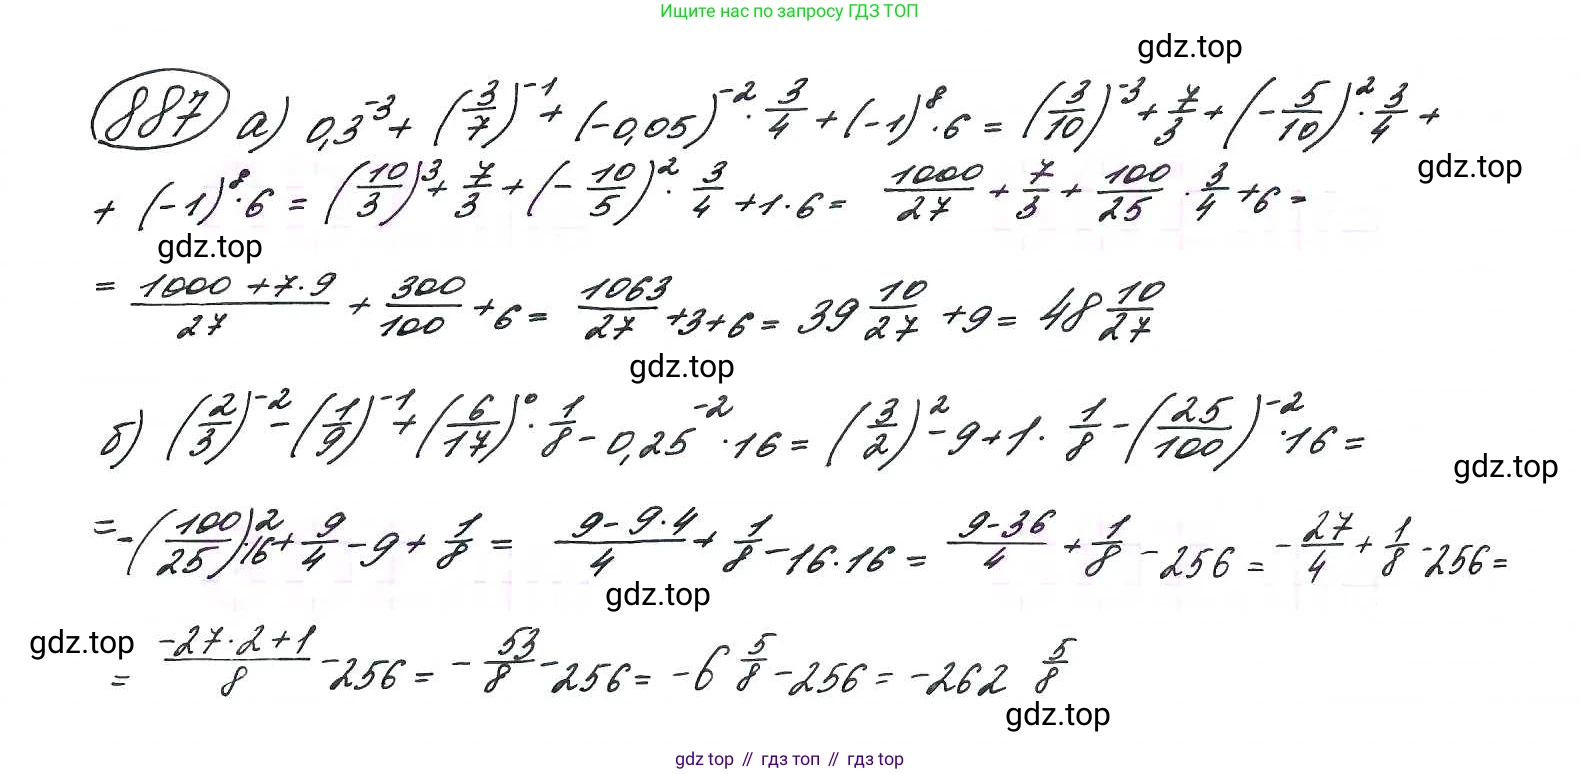 Ищите нас по запросу ГДЗ ТОП
gdz.top
887 а) 0,3^-3 + (3/7)^-1 + (-0,05)^-2 · 3/4 + (-1)^8 · 6 = (3/10)^-3 + 7/3 + (-5/10)^2 · 3/4 +
gdz.top
+ (-1)^8 · 6 = (10/3)^3 + 7/3 + (-10/5)^2 · 3/4 + 1 · 6 = 1000/27 + 7/3 + 100/25 · 3/4 + 6 =
gdz.top
= (1000 + 7 · 9)/27 + 300/100 + 6 = 1063/27 + 3 + 6 = 39 10/27 + 9 = 48 10/27
gdz.top
б) (2/3)^-2 - (1/9)^-1 + (6/17)^0 · 1/8 - 0,25^-2 · 16 = (3/2)^2 - 9 + 1 · 1/8 - (25/100)^-2 · 16 =
gdz.top
= -(100/25)^2 · 16 + 9/4 - 9 + 1/8 = (9 - 9 · 4)/4 + 1/8 - 16 · 16 = (9 - 36)/4 + 1/8 - 256 = -27/4 + 1/8 - 256 =
gdz.top
gdz.top
= (-27 · 2 + 1)/8 - 256 = -53/8 - 256 = -6 5/8 - 256 = -262 5/8
gdz.top
gdz top // гдз топ // гдз top